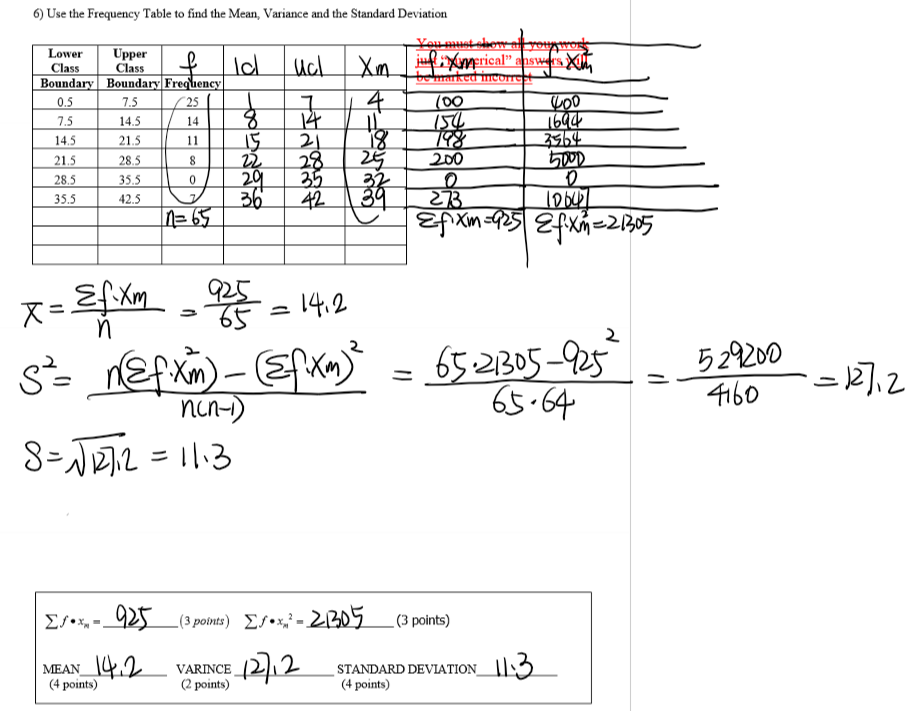 6) Use the Frequency Table to find the Mean, Variance and the Standard Deviation
You must show all your work
just "numerical" answers will
be marked incorrect
Lower Class Boundary Upper Class Boundary f Frequency lcl ucl Xm f·Xm f·Xm²
0.5 7.5 25 1 7 4 100 400
7.5 14.5 14 8 14 11 154 1694
14.5 21.5 11 15 21 18 198 3564
21.5 28.5 8 22 28 25 200 5000
28.5 35.5 0 29 35 32 0 0
35.5 42.5 7 36 42 39 273 10647
n=65 Σf·Xm=925 Σf·Xm²=21305
x̄ = Σf·Xm / n = 925 / 65 = 14.2
S² = n(Σf·Xm²) − (Σf·Xm)² / n(n-1) = 65·21305 − 925² / 65·64 = 529200 / 4160 = 127.2
S = √127.2 = 11.3
Σf•xm = 925 (3 points) Σf•xm² = 21305 (3 points)
MEAN 14.2 VARINCE 127.2 STANDARD DEVIATION 11.3
(4 points) (2 points) (4 points)